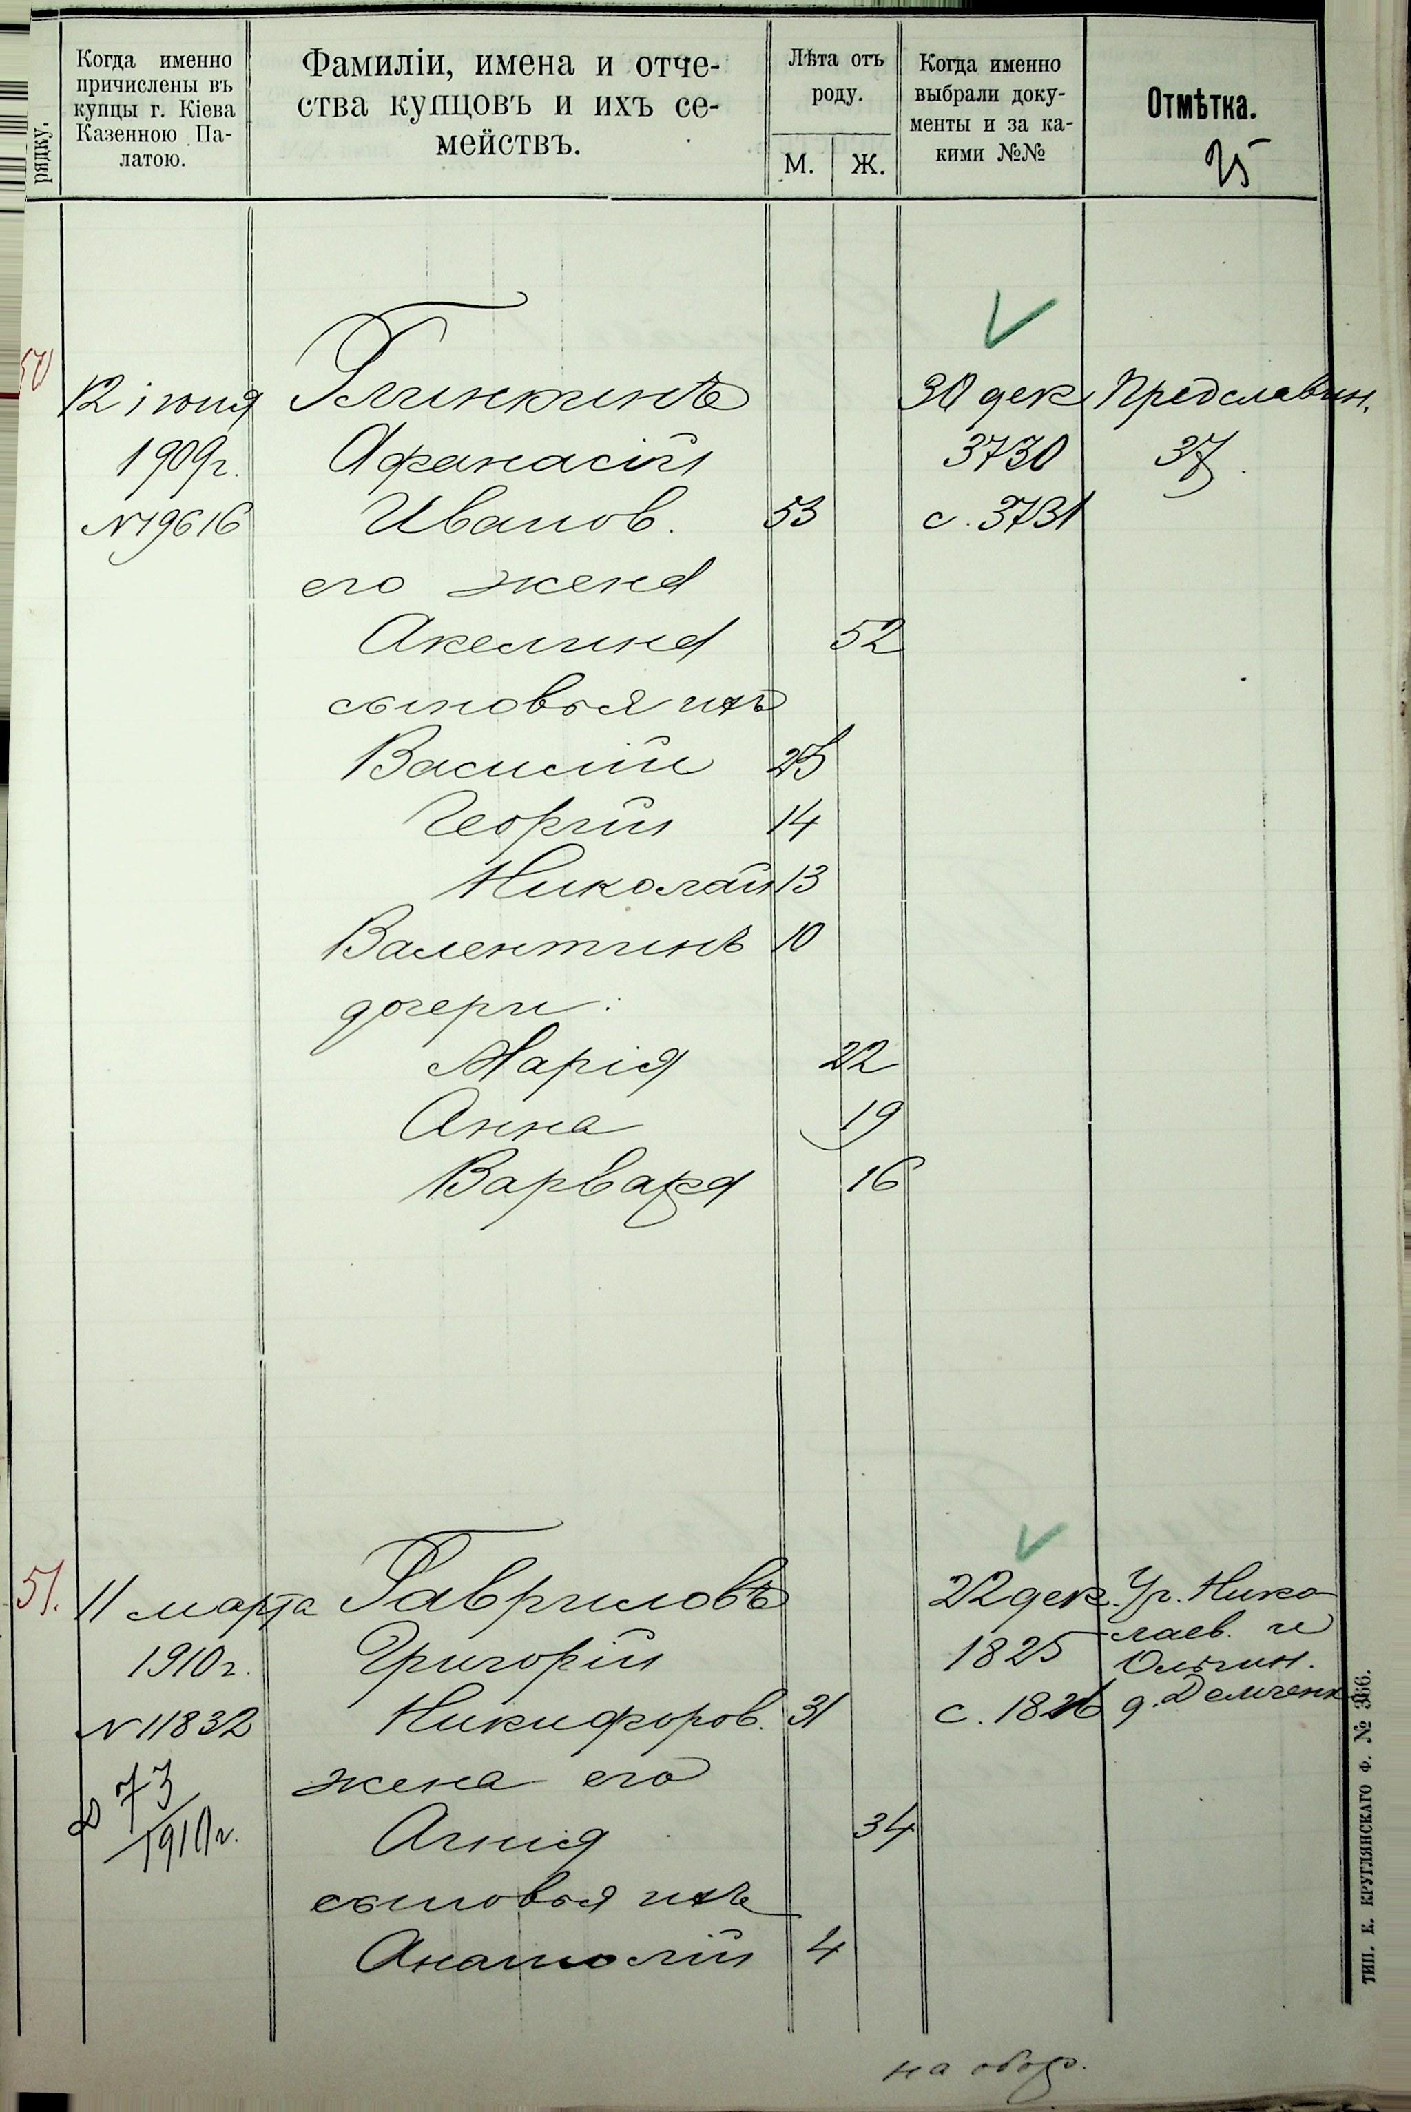 рядку.
Когда именно
причислены въ
купцы г. Кіева
Казенною Па-
латою.
Фамиліи, имена и отче-
ства купцовъ и ихъ се-
мействъ.
Лѣта отъ
роду.
М. Ж.
Когда именно
выбрали доку-
менты и за ка-
кими №№
Отмѣтка.
25
50
12 іюня Глинкинъ 30 дек Предславин.
1909г. Афанасій 3730 37.
№19616 Иванов. 53 с. 3731
его жена
Акелина 52
сыновья ихъ
Василій 25
Георгій 14
Николай 13
Валентинъ 10
дочери:
Марія 22
Анна 19
Варвара 16
51. 11 марта Гавриловъ 22 дек. Уг. Нико-
лаев. и
1910г. Григорій 1825 Ольгин.
№11832 Никифоров. 31 с. 1826 д. Демченк
жена его
73
1910г.
Агнія 34
сыновья ихъ
Анатолій 4
на обор.
ТИП. К. КРУГЛЯНСКАГО Ф. № 366.